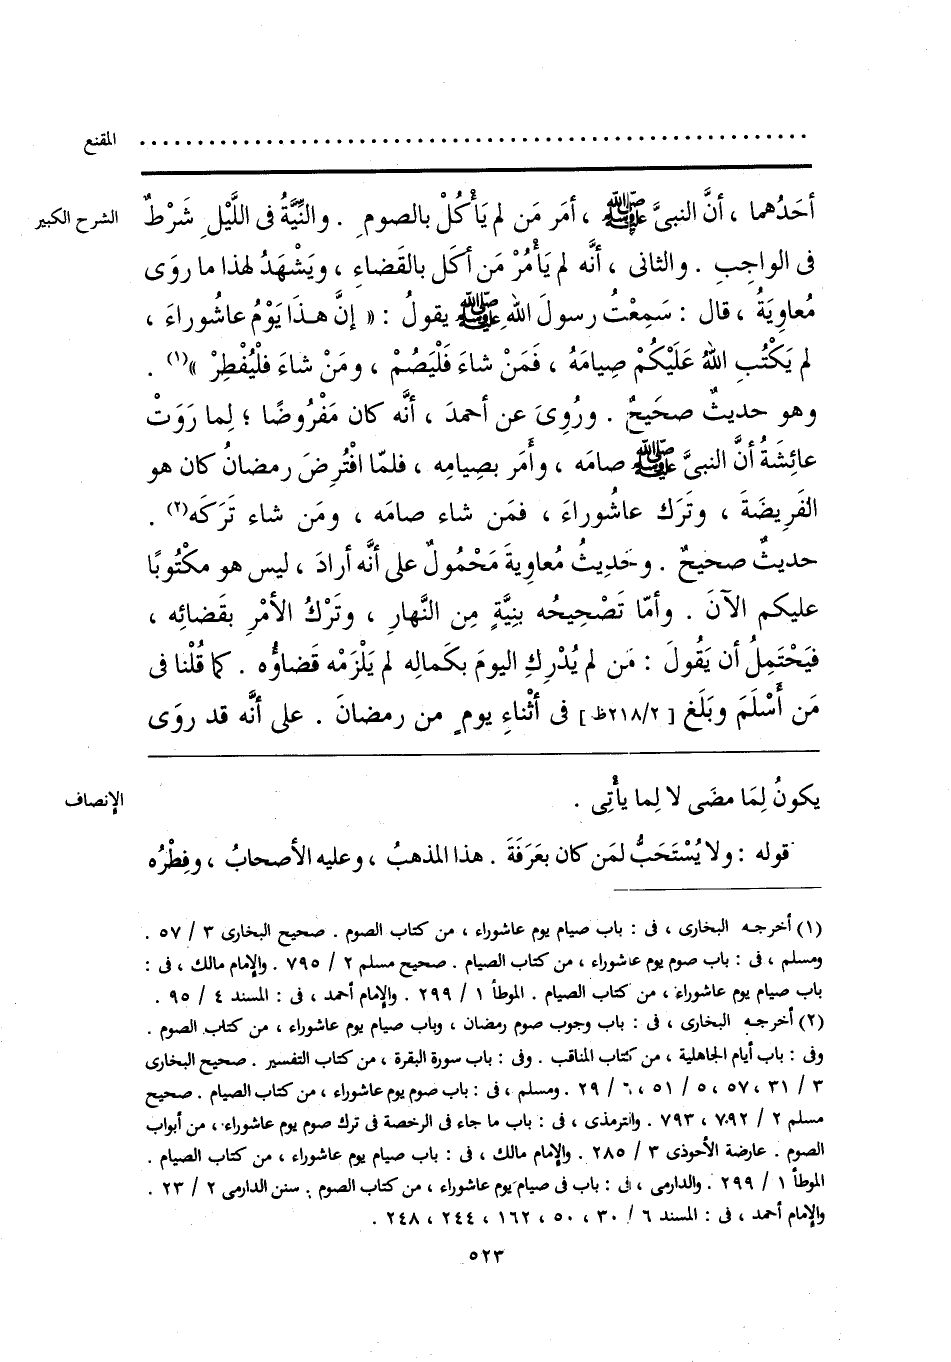 المقنع ............................................................
الشرح الكبير
أحَدُهما ، أنَّ النبىَّ ﷺ ، أمَر مَن لم يَأْكُلْ بالصومِ . والنِّيَّةُ فى اللَّيْلِ شَرْطٌ
فى الواجِبِ . والثانى ، أنَّه لم يَأْمُرْ مَن أكَل بالقَضاءِ ، ويَشْهَدُ لهذا ما روَى
مُعاوِيَةُ ، قال : سَمِعْتُ رسولَ اللهِ ﷺ يقولُ : « إنَّ هـذَا يَوْمُ عاشُوراءَ ،
لم يَكْتُبِ اللهُ عَلَيْكُمْ صِيامَهُ ، فَمَنْ شاءَ فَلْيَصُمْ ، ومَنْ شاءَ فلْيُفْطِرْ »(١) .
وهو حديثٌ صحَيحٌ . ورُوِىَ عن أحمدَ ، أنَّه كان مَفْرُوضًا ؛ لِما رَوَتْ
عائِشَةُ أنَّ النبىَّ ﷺ صامَه ، وأمَر بصِيامِه ، فلمّا افْتُرِضَ رمضانُ كان هو
الفَرِيضَةَ ، وتَرَك عاشُوراءَ ، فمَن شاء صامَه ، ومَن شاء تَرَكَه(٢) .
حديثٌ صحيحٌ . وحَدِيثُ مُعاوِيةَ مَحْمُولٌ على أنَّه أرادَ ، ليس هو مكْتُوبًا
عليكم الآنَ . وأمّا تَصْحِيحُه بنِيَّةٍ مِن النَّهارِ ، وتَرْكُ الأمْرِ بقَضائِه ،
فيَحْتَمِلُ أن يَقُولَ : مَن لم يُدْرِكِ اليومَ بكَمالِه لم يَلْزَمْه قَضاؤُه . كما قُلْنا فى
مَن أَسْلَمَ وبَلَغ [ ٢١٨/٢ظ ] فى أثْناءِ يومٍ من رمضانَ . على أنَّه قد روَى
الإنصاف
يكونُ لِمَا مضَى لا لِما يأْتِى .
قوله : ولا يُسْتَحَبُّ لمَن كان بعَرَفَةَ . هذا المذهبُ ، وعليه الأصحابُ ، وفِطْرُه
(١) أخرجـه البخارى ، فى : باب صيام يوم عاشوراء ، من كتاب الصوم . صحيح البخارى ٣ / ٥٧ .
ومسلم ، فى : باب صوم يوم عاشوراء ، من كتاب الصيام . صحيح مسلم ٢ / ٧٩٥ . والإمام مالك ، فى :
باب صيام يوم عاشوراء ، من كتاب الصيام . الموطأ ١ / ٢٩٩ . والإمام أحمد ، فى : المسند ٤ / ٩٥ .
(٢) أخرجـه البخارى ، فى : باب وجوب صوم رمضان ، وباب صيام يوم عاشوراء ، من كتاب الصوم .
وفى : باب أيام الجاهلية ، من كتاب المناقب . وفى : باب سورة البقرة ، من كتاب التفسير . صحيح البخارى
٣ / ٣١ ، ٥٧ ، ٥ / ٥١ ، ٦ / ٢٩ . ومسلم ، فى : باب صوم يوم عاشوراء ، من كتاب الصيام . صحيح
مسلم ٢ / ٧٩٢ ، ٧٩٣ . والترمذى ، فى : باب ما جاء فى الرخصة فى ترك صوم يوم عاشوراء ، من أبواب
الصوم . عارضة الأحوذى ٣ / ٢٨٥ . والإمام مالك ، فى : باب صيام يوم عاشوراء ، من كتاب الصيام .
الموطأ ١ / ٢٩٩ . والدارمى ، فى : باب فى صيام يوم عاشوراء ، من كتاب الصوم . سنن الدارمى ٢ / ٢٣ .
والإمام أحمد ، فى : المسند ٦ / ٣٠ ، ٥٠ ، ١٦٢ ، ٢٤٤ ، ٢٤٨ .
٥٢٣